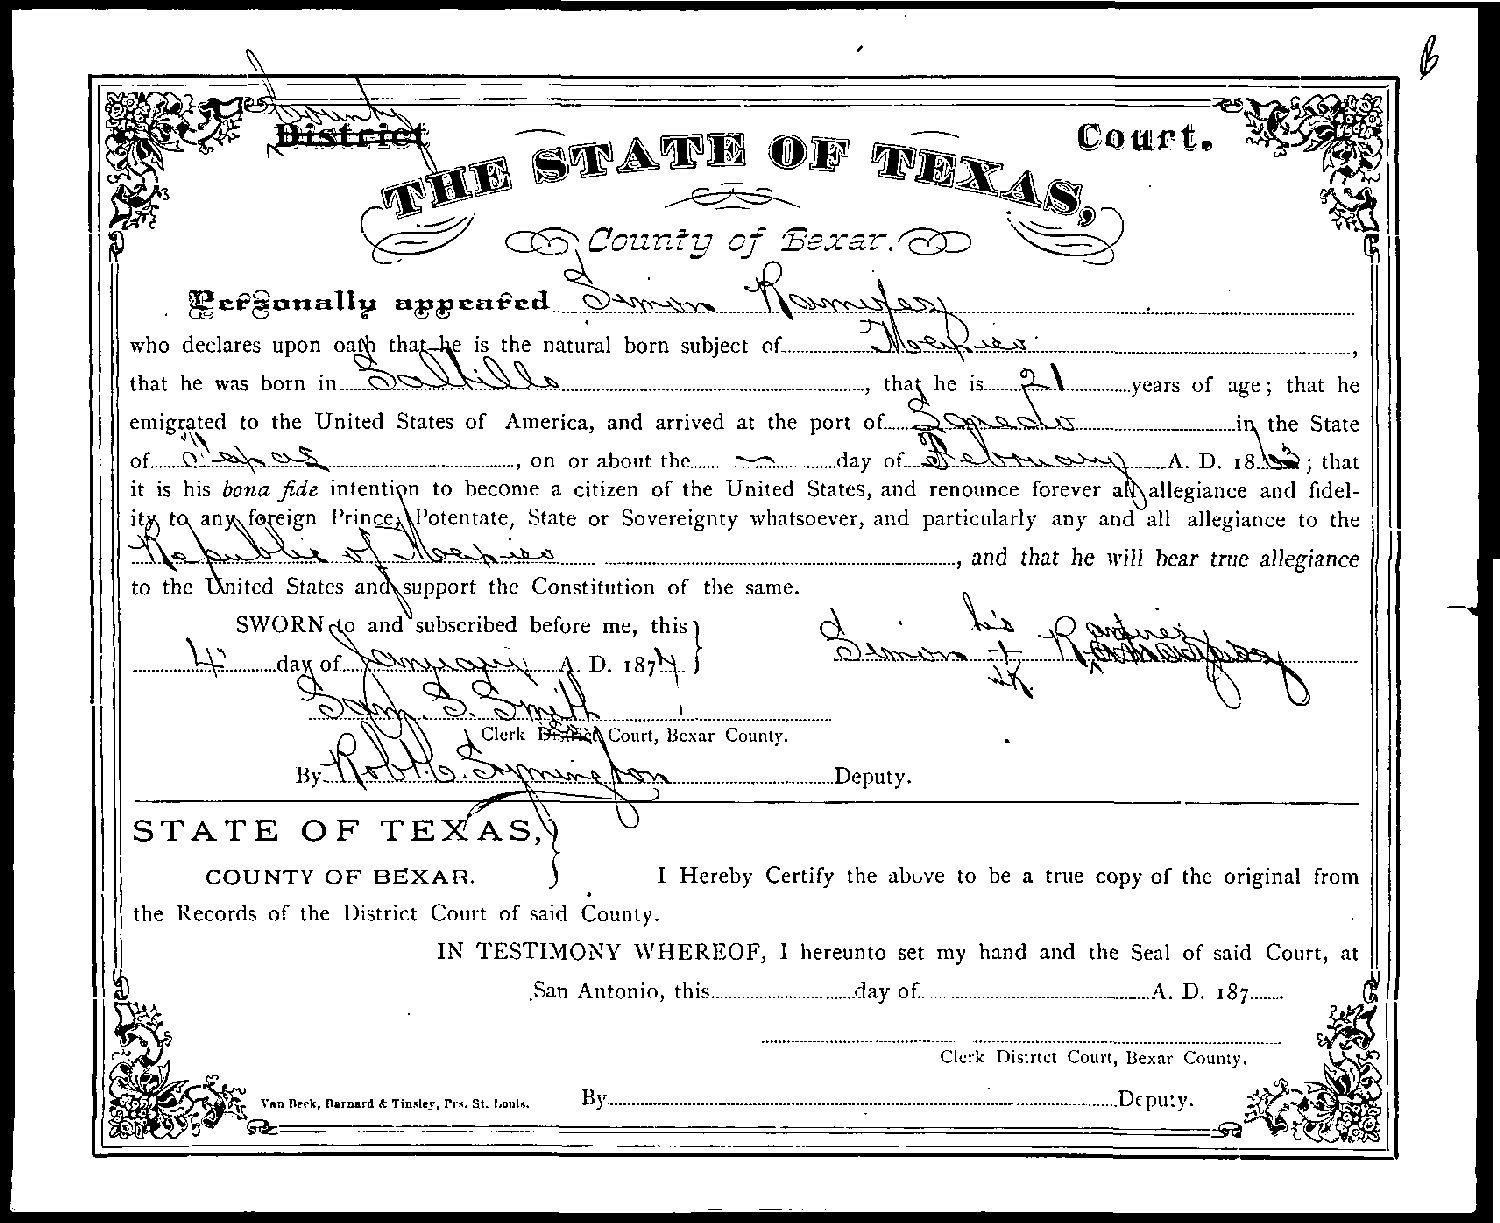 County
District Court.
THE STATE OF TEXAS,
County of Bexar.
Personally appeared Simon Ramirez
who declares upon oath that he is the natural born subject of Mexico,
that he was born in Saltillo, that he is 21 years of age; that he
emigrated to the United States of America, and arrived at the port of Laredo in the State
of Texas, on or about the — day of February A. D. 18; that
it is his bona fide intention to become a citizen of the United States, and renounce forever all allegiance and fidel-
ity to any foreign Prince, Potentate, State or Sovereignty whatsoever, and particularly any and all allegiance to the
Republic of Mexico, and that he will bear true allegiance
to the United States and support the Constitution of the same.
SWORN to and subscribed before me, this
4 day of January A. D. 1874
Simon his + mk Ramirez
Sam. S. Smith
Clerk District Court, Bexar County.
By Robt. C. Symington Deputy.
STATE OF TEXAS,
COUNTY OF BEXAR. I Hereby Certify the above to be a true copy of the original from
the Records of the District Court of said County.
IN TESTIMONY WHEREOF, I hereunto set my hand and the Seal of said Court, at
San Antonio, this day of A. D. 187
Clerk District Court, Bexar County,
Van Beek, Barnard & Tinsley, Prs. St. Louis. By Deputy.